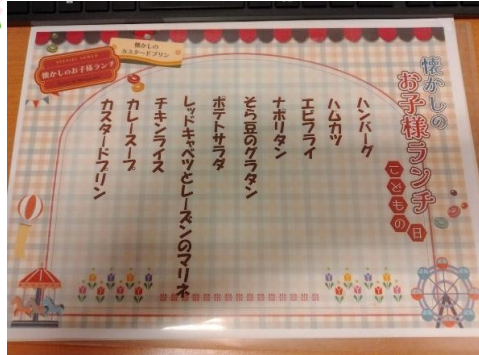 懐かしの
お子様ランチ
こどもの日
ハンバーグ
ハムカツ
エビフライ
ナポリタン
そら豆のグラタン
ポテトサラダ
レッドキャベツとレーズンのマリネ
チキンライス
カレースープ
カスタードプリン
懐かしの
カスタードプリン
懐かしのお子様ランチ